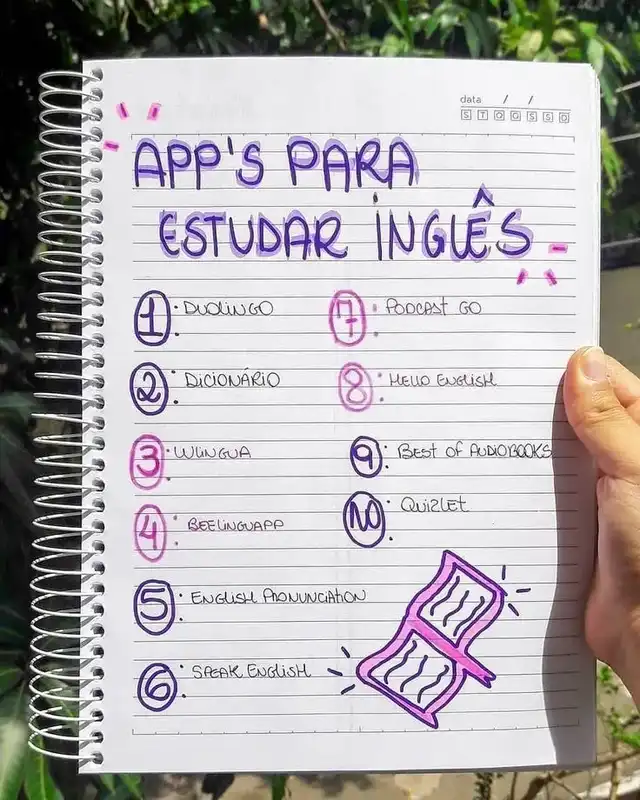 data / /
S T Q Q S S D
APP'S PARA
ESTUDAR INGLÊS
1 DUOLINGO
2 DICIONÁRIO
3 WLINGUA
4 BEELINGUAPP
5 ENGLISH PRONUNCIATION
6 SPEAK ENGLISH
7 PODCAST GO
8 HELLO ENGLISH
9 BEST OF AUDIOBOOKS
10 QUIZLET